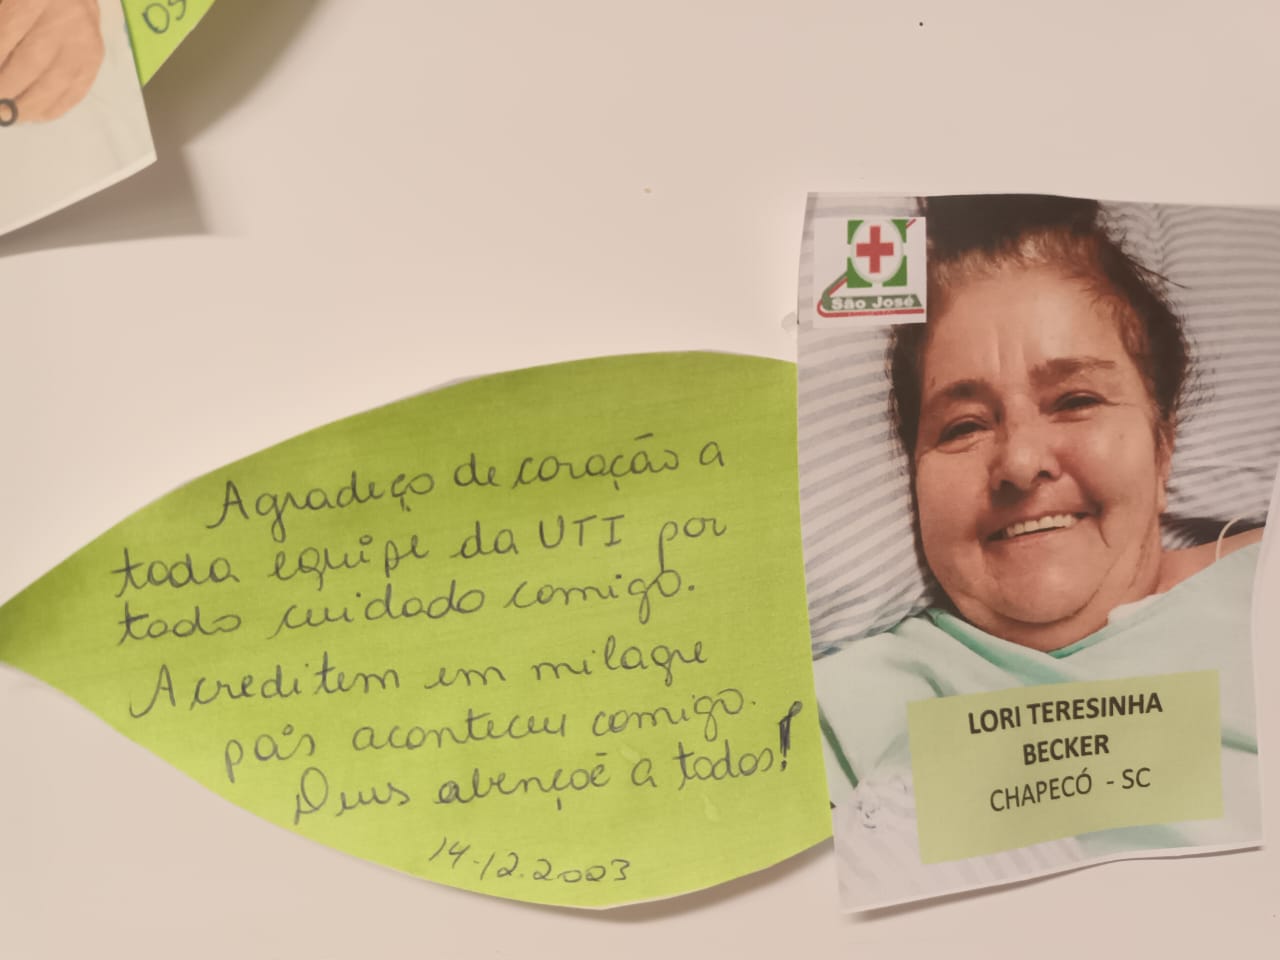 09
Agradeço de coração a
toda equipe da UTI por
todo cuidado comigo.
Acreditem em milagre
pois aconteceu comigo.
Deus abençoē a todos!
14.12.2023
São José
LORI TERESINHA
BECKER
CHAPECÓ - SC